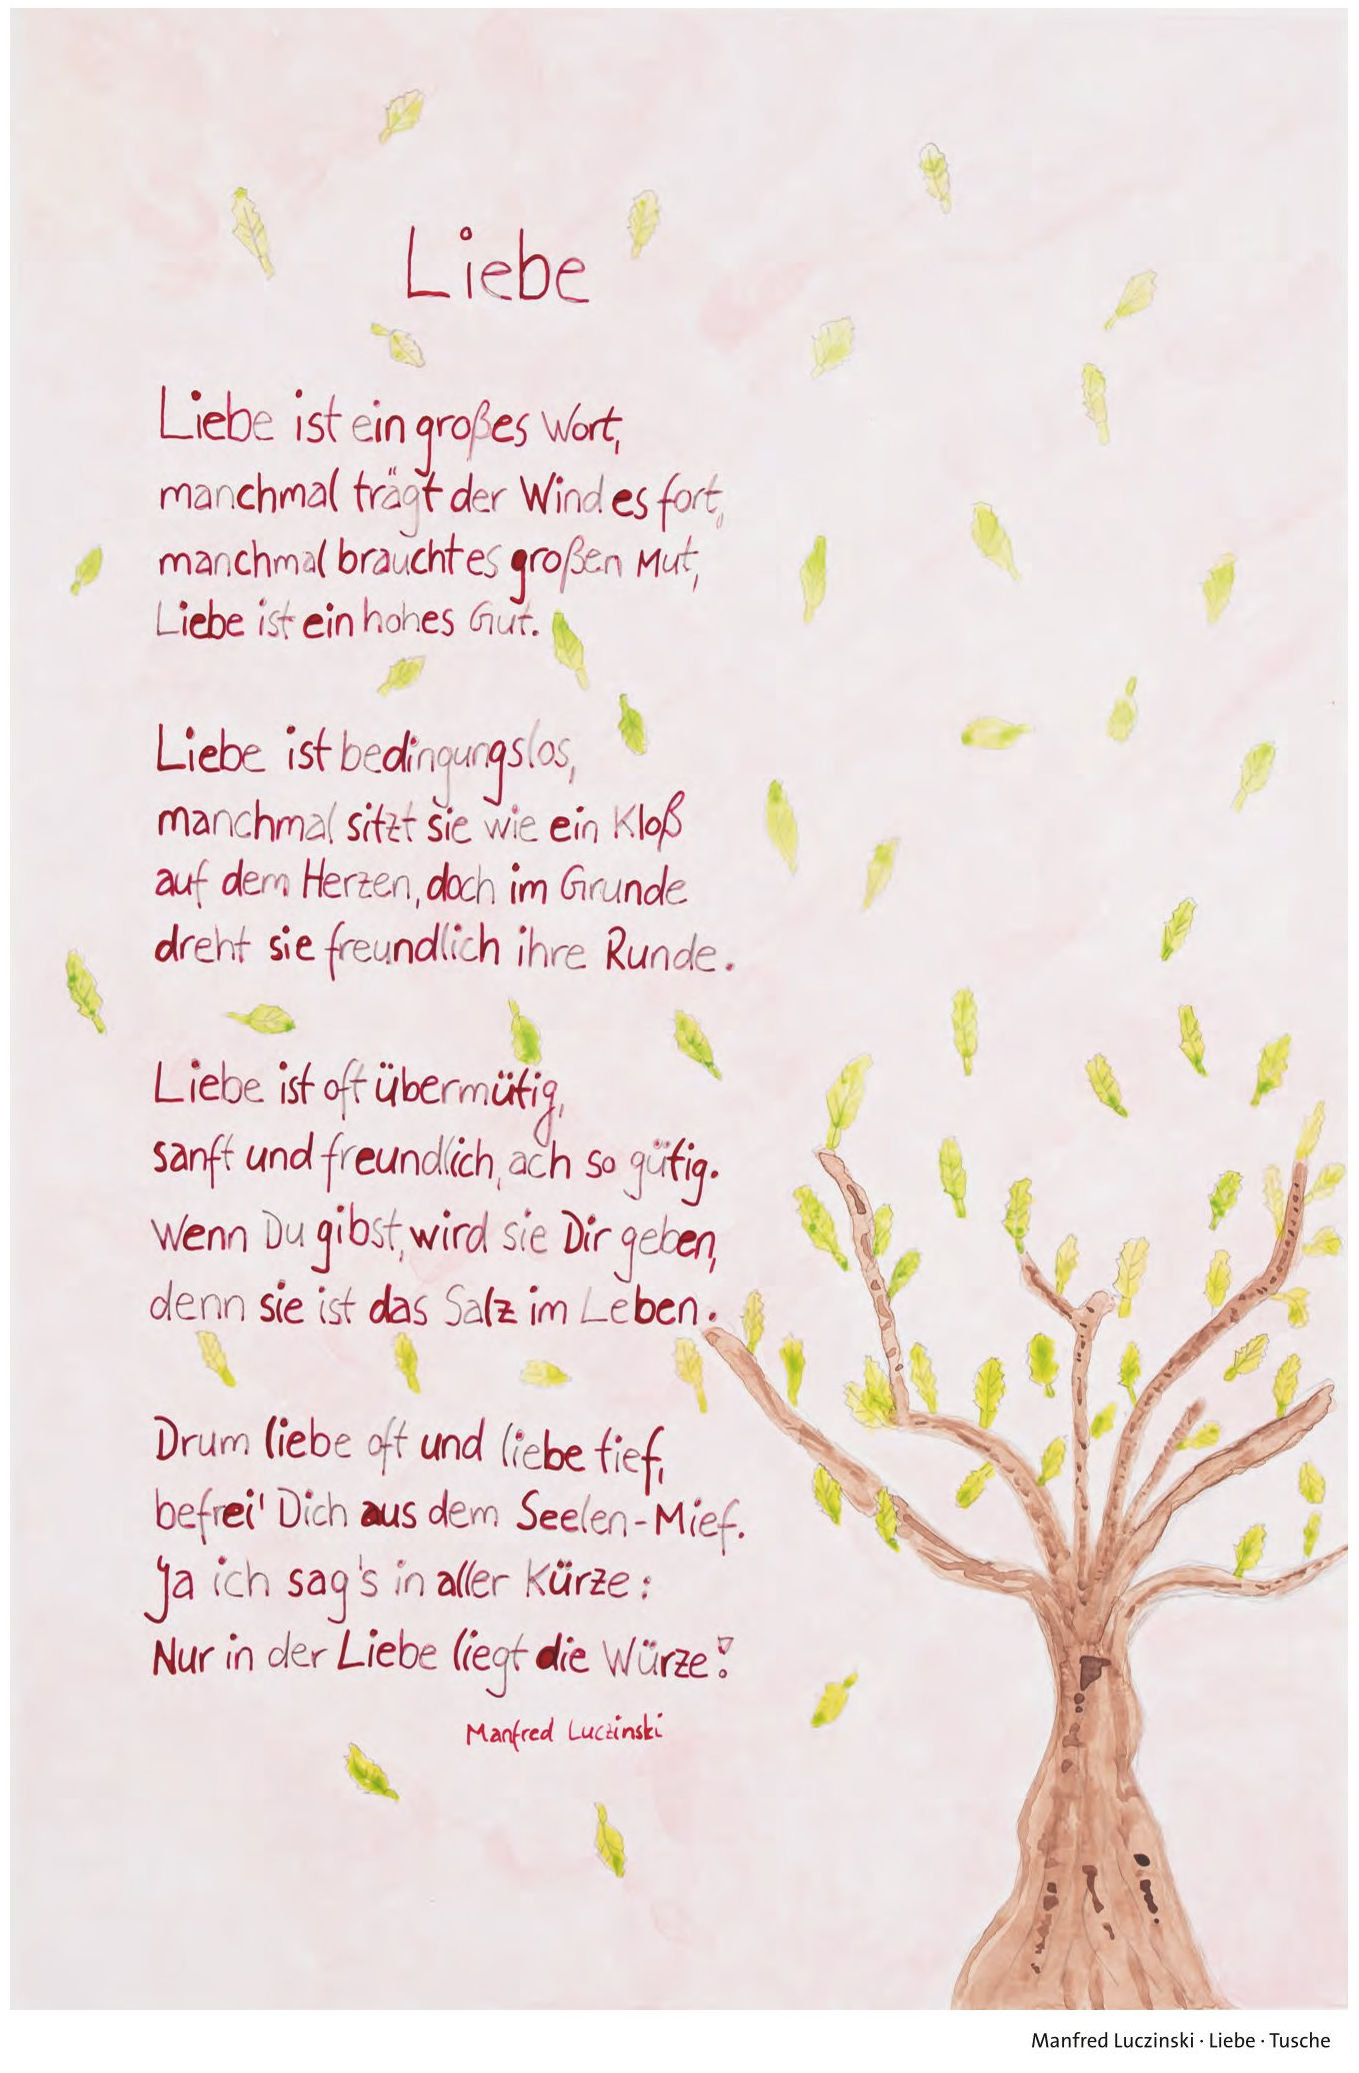 Liebe
Liebe ist ein großes Wort,
manchmal trägt der Wind es fort,
manchmal braucht es großen Mut,
Liebe ist ein hohes Gut.
Liebe ist bedingungslos,
manchmal sitzt sie wie ein Kloß
auf dem Herzen, doch im Grunde
dreht sie freundlich ihre Runde.
Liebe ist oft übermütig,
sanft und freundlich, ach so gütig.
Wenn Du gibst, wird sie Dir geben,
denn sie ist das Salz im Leben.
Drum liebe oft und liebe tief,
befrei' Dich aus dem Seelen-Mief.
Ja ich sag's in aller Kürze:
Nur in der Liebe liegt die Würze!
Manfred Luczinski
Manfred Luczinski · Liebe · Tusche